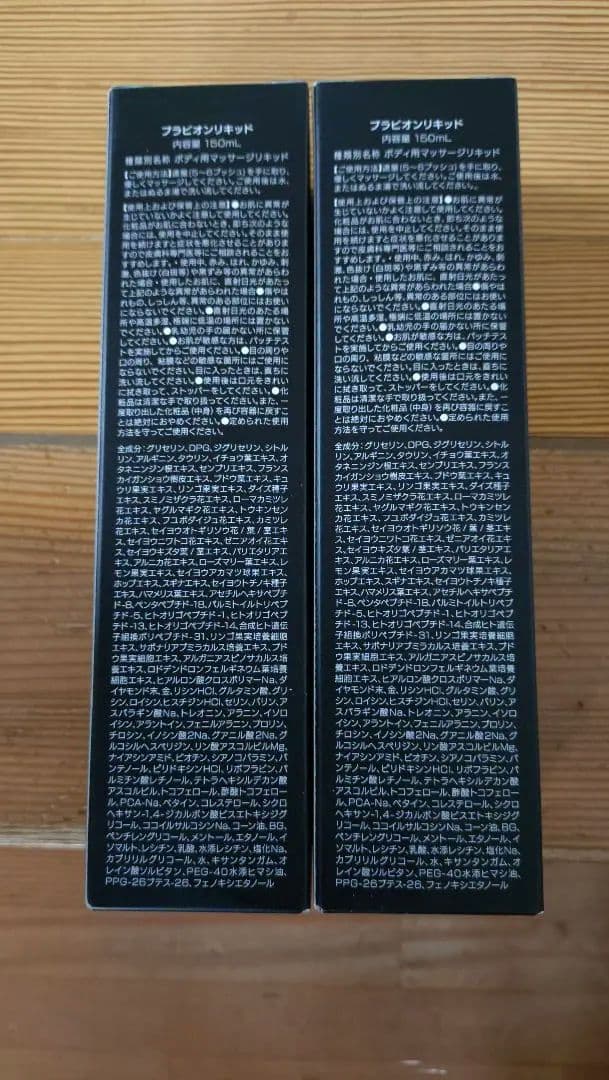 プラビオンリキッド
内容量 150mL
種類別名称 ボディ用マッサージリキッド
【ご使用方法】適量(5~6プッシュ)を手に取り、
優しくマッサージしてください。ご使用後は水、
またはぬるま湯で洗い流してください。
【使用上および保管上の注意】●お肌に異常が
生じていないかよく注意して使用してください。
化粧品がお肌に合わないとき、即ち次のような
場合には、使用を中止してください。そのまま使
用を続けますと症状を悪化させることがあります
ので皮膚科専門医等にご相談されることをお
すすめします。・使用中、赤み、はれ、かゆみ、刺
激、色抜け(白斑等)や黒ずみ等の異常があらわ
れた場合・使用したお肌に、直射日光があたっ
て上記のような異常があらわれた場合●傷やは
れもの、しっしん等、異常のある部位にはお使い
にならないでください。●直射日光のあたる場
所や高温多湿、極端に低温の場所には置かない
でください。●乳幼児の手の届かない所に保管
してください。●お肌が敏感な方は、パッチテス
トを実施してからご使用ください。●目の周りや
口の周り、粘膜などの敏感な箇所にはご使用に
ならないでください。目に入ったときは、直ちに
洗い流してください。●使用後は口元をきれい
に拭き取って、ストッパーをしてください。●化
粧品は清潔な手で取り扱ってください。また、一
度取り出した化粧品(中身)を再び容器に戻すこ
とは絶対におやめください。●定められた使用
方法を守ってご使用ください。
全成分:グリセリン、DPG、ジグリセリン、シトル
リン、アルギニン、タウリン、イチョウ葉エキス、オ
タネニンジン根エキス、センブリエキス、フランス
カイガンショウ樹皮エキス、ブドウ葉エキス、キュ
ウリ果実エキス、リンゴ果実エキス、ダイズ種子
エキス、スミノミザクラ花エキス、ローマカミツレ
花エキス、ヤグルマギク花エキス、トウキンセン
カ花エキス、フユボダイジュ花エキス、カミツレ
花エキス、セイヨウオトギリソウ花/葉/茎エキ
ス、セイヨウニワトコ花エキス、ゼニアオイ花エキ
ス、セイヨウキズタ葉/茎エキス、パリエタリアエ
キス、アルニカ花エキス、ローズマリー葉エキス、レ
モン果実エキス、セイヨウアカマツ球果エキス、
ホップエキス、スギナエキス、セイヨウトチノキ種子
エキス、ハマメリス葉エキス、アセチルヘキサペプチ
ド-8、ペンタペプチド-18、パルミトイルトリペプ
チド-5、ヒトオリゴペプチド-1、ヒトオリゴペプ
チド-13、ヒトオリゴペプチド-14、合成ヒト遺伝
子組換ポリペプチド-31、リンゴ果実培養細胞エ
キス、サポナリアプミラカルス培養エキス、ブド
ウ果実細胞エキス、アルガニアスピノサカルス培
養エキス、ロドデンドロフェルギネウム葉培養
細胞エキス、ヒアルロン酸クロスポリマーNa、ダ
イヤモンド末、金、リシンHCl、グルタミン酸、グリ
シン、ロイシン、ヒスチジンHCl、セリン、バリン、ア
スパラギン酸Na、トレオニン、アラニン、イソロイ
シン、アラントイン、フェニルアラニン、プロリン、
チロシン、イノシン酸2Na、グアニル酸2Na、グ
ルコシルヘスペリジン、リン酸アスコルビルMg、
ナイアシンアミド、ビオチン、シアノコバラミン、パ
ンテノール、ピリドキシンHCl、リボフラビン、パ
ルミチン酸レチノール、テトラヘキシルデカン酸
アスコルビル、トコフェロール、酢酸トコフェロー
ル、PCA-Na、ベタイン、コレステロール、シクロ
ヘキサン-1,4-ジカルボン酸ビスエトキシジグ
リコール、ココイルサルコシンNa、コーン油、BG、
ペンチレングリコール、メントール、エタノール、イ
ソマルト、レシチン、乳酸、水添レシチン、塩化Na、
カプリリルグリコール、水、キサンタンガム、オ
レイン酸ソルビタン、PEG-40水添ヒマシ油、
PPG-26ブテス-26、フェノキシエタノール
プラビオンリキッド
内容量 150mL
種類別名称 ボディ用マッサージリキッド
【ご使用方法】適量(5~6プッシュ)を手に取り、
優しくマッサージしてください。ご使用後は水、
またはぬるま湯で洗い流してください。
【使用上および保管上の注意】●お肌に異常が
生じていないかよく注意して使用してください。
化粧品がお肌に合わないとき、即ち次のような
場合には、使用を中止してください。そのまま使
用を続けますと症状を悪化させることがあります
ので皮膚科専門医等にご相談されることをお
すすめします。・使用中、赤み、はれ、かゆみ、刺
激、色抜け(白斑等)や黒ずみ等の異常があらわ
れた場合・使用したお肌に、直射日光があたっ
て上記のような異常があらわれた場合●傷やは
れもの、しっしん等、異常のある部位にはお使い
にならないでください。●直射日光のあたる場
所や高温多湿、極端に低温の場所には置かない
でください。●乳幼児の手の届かない所に保管
してください。●お肌が敏感な方は、パッチテス
トを実施してからご使用ください。●目の周りや
口の周り、粘膜などの敏感な箇所にはご使用に
ならないでください。目に入ったときは、直ちに
洗い流してください。●使用後は口元をきれい
に拭き取って、ストッパーをしてください。●化
粧品は清潔な手で取り扱ってください。また、一
度取り出した化粧品(中身)を再び容器に戻すこ
とは絶対におやめください。●定められた使用
方法を守ってご使用ください。
全成分:グリセリン、DPG、ジグリセリン、シトル
リン、アルギニン、タウリン、イチョウ葉エキス、オ
タネニンジン根エキス、センブリエキス、フランス
カイガンショウ樹皮エキス、ブドウ葉エキス、キュ
ウリ果実エキス、リンゴ果実エキス、ダイズ種子
エキス、スミノミザクラ花エキス、ローマカミツレ
花エキス、ヤグルマギク花エキス、トウキンセン
カ花エキス、フユボダイジュ花エキス、カミツレ
花エキス、セイヨウオトギリソウ花/葉/茎エキ
ス、セイヨウニワトコ花エキス、ゼニアオイ花エキ
ス、セイヨウキズタ葉/茎エキス、パリエタリアエ
キス、アルニカ花エキス、ローズマリー葉エキス、レ
モン果実エキス、セイヨウアカマツ球果エキス、
ホップエキス、スギナエキス、セイヨウトチノキ種子
エキス、ハマメリス葉エキス、アセチルヘキサペプチ
ド-8、ペンタペプチド-18、パルミトイルトリペプ
チド-5、ヒトオリゴペプチド-1、ヒトオリゴペプ
チド-13、ヒトオリゴペプチド-14、合成ヒト遺伝
子組換ポリペプチド-31、リンゴ果実培養細胞エ
キス、サポナリアプミラカルス培養エキス、ブド
ウ果実細胞エキス、アルガニアスピノサカルス培
養エキス、ロドデンドロフェルギネウム葉培養
細胞エキス、ヒアルロン酸クロスポリマーNa、ダ
イヤモンド末、金、リシンHCl、グルタミン酸、グリ
シン、ロイシン、ヒスチジンHCl、セリン、バリン、ア
スパラギン酸Na、トレオニン、アラニン、イソロイ
シン、アラントイン、フェニルアラニン、プロリン、
チロシン、イノシン酸2Na、グアニル酸2Na、グ
ルコシルヘスペリジン、リン酸アスコルビルMg、
ナイアシンアミド、ビオチン、シアノコバラミン、パ
ンテノール、ピリドキシンHCl、リボフラビン、パ
ルミチン酸レチノール、テトラヘキシルデカン酸
アスコルビル、トコフェロール、酢酸トコフェロー
ル、PCA-Na、ベタイン、コレステロール、シクロ
ヘキサン-1,4-ジカルボン酸ビスエトキシジグ
リコール、ココイルサルコシンNa、コーン油、BG、
ペンチレングリコール、メントール、エタノール、イ
ソマルト、レシチン、乳酸、水添レシチン、塩化Na、
カプリリルグリコール、水、キサンタンガム、オ
レイン酸ソルビタン、PEG-40水添ヒマシ油、
PPG-26ブテス-26、フェノキシエタノール